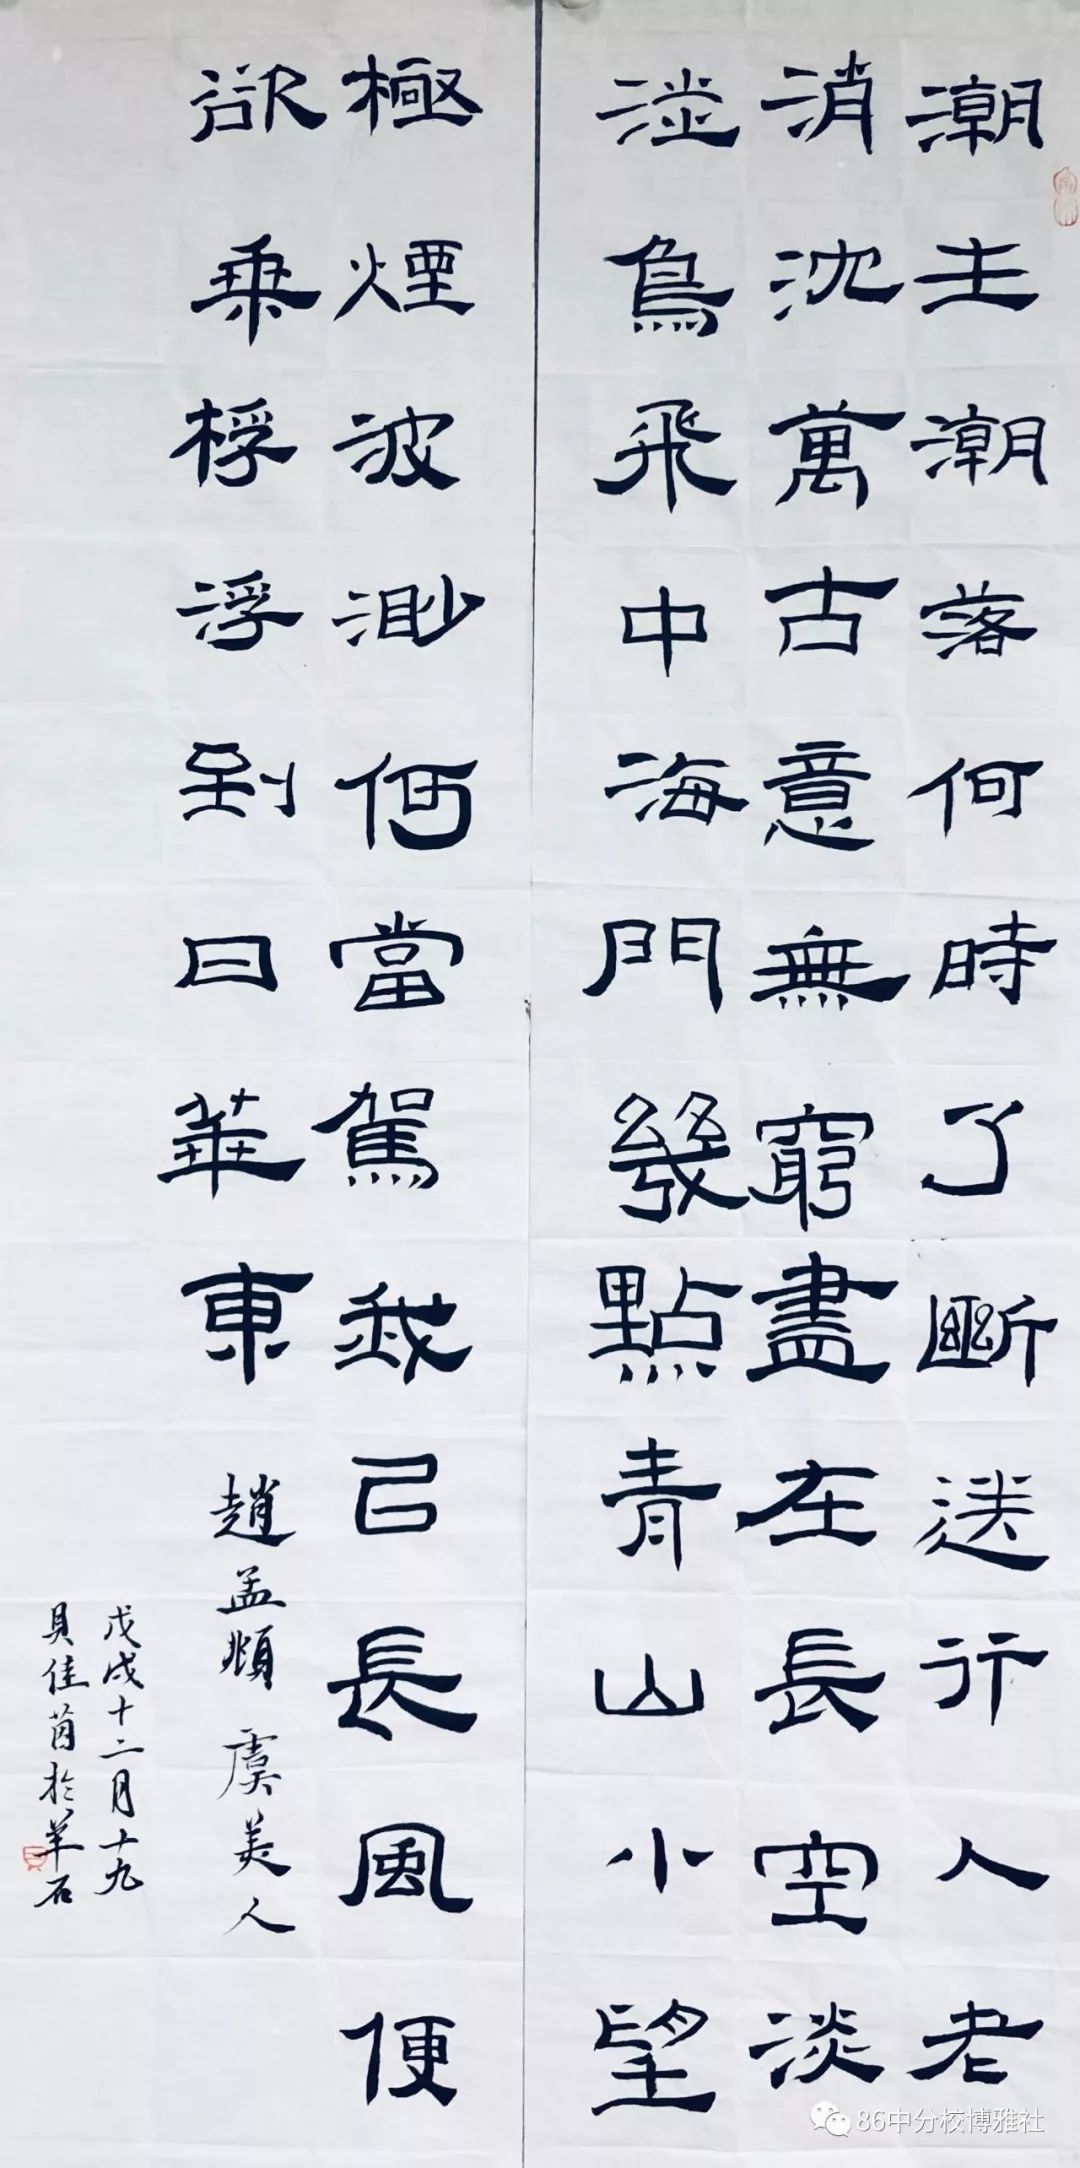 潮生潮落何時了斷送行人老
消沈萬古意無窮盡在長空淡
淡鳥飛中海門幾點青山小望
極煙波渺何當駕我以長風便
欲乘桴浮到日華東
趙孟頫 虞美人
戊戌十二月十九
佳茵於羊石
86中分校博雅社